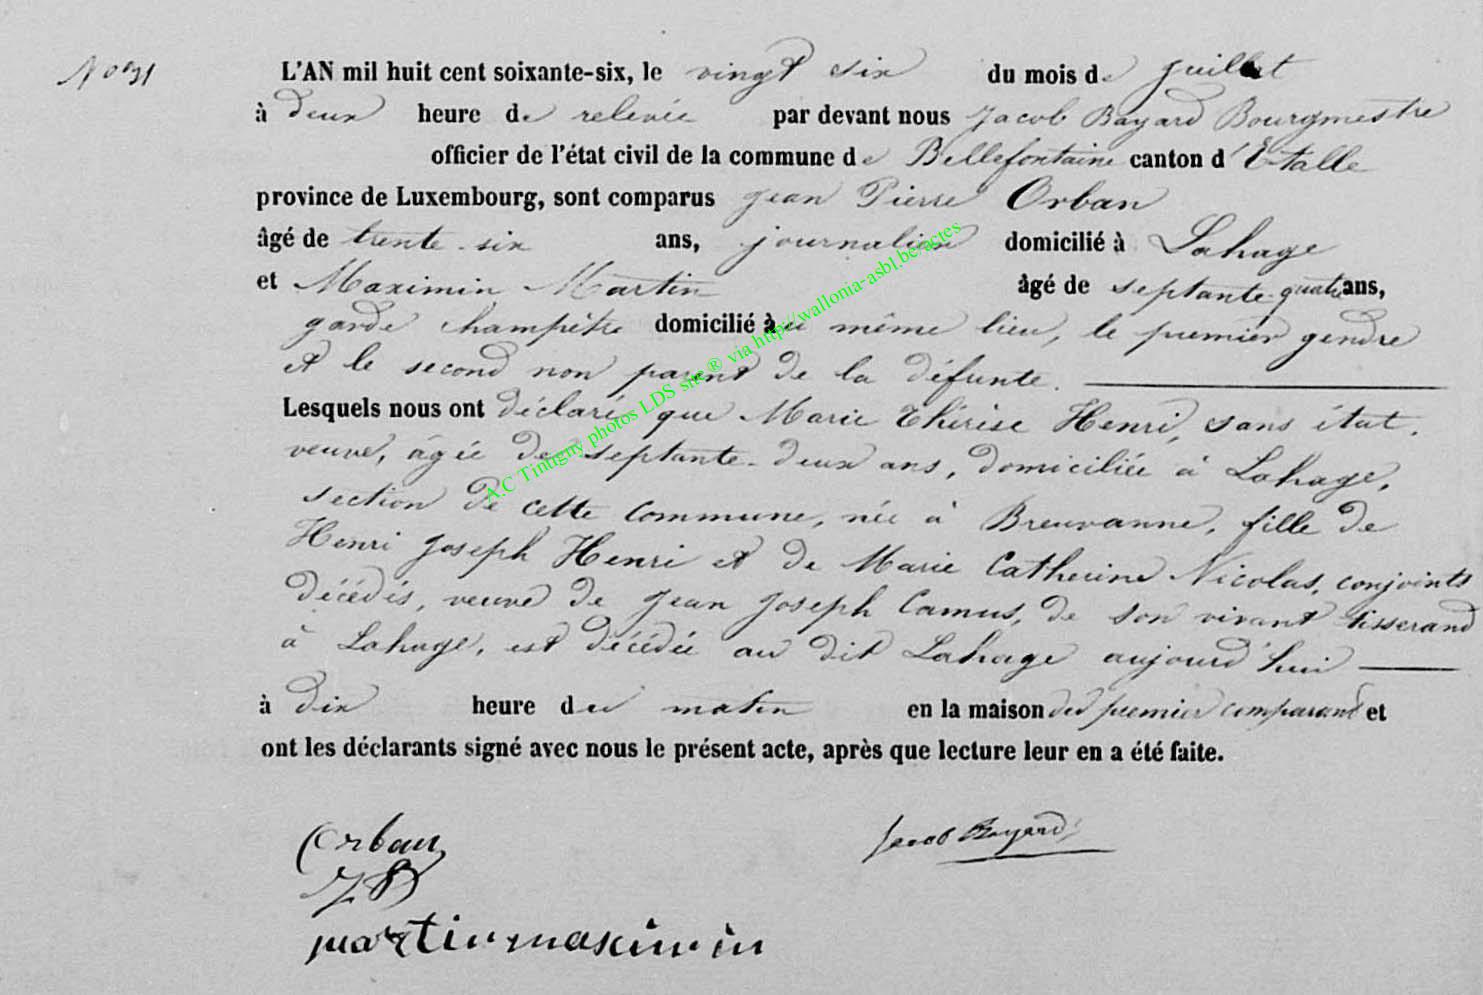 L'AN mil huit cent soixante-six, le vingt six du mois de juillet
à deux heure de relevée par devant nous Jacob Bayard Bourgmestre
officier de l'état civil de la commune de Bellefontaine canton d'Etalle
province de Luxembourg, sont comparus Jean Pierre Orban
âgé de trente-six ans, journalier domicilié à Lahage
et Maximin Martin âgé de septante-quatre ans,
garde champêtre domicilié au même lieu, le premier gendre
et le second non parent de la défunte.
Lesquels nous ont déclaré que Marie Thérèse Henri, sans état,
veuve, âgée de septante-deux ans, domiciliée à Lahage,
section de cette commune, née à Breuvanne, fille de
Henri Joseph Henri et de Marie Catherine Nicolas, conjoints
décédés, veuve de Jean Joseph Camus, de son vivant tisserand
à Lahage, est décédée au dit Lahage aujourd'hui
à dix heure du matin en la maison du premier comparant et
ont les déclarants signé avec nous le présent acte, après que lecture leur en a été faite.
Orban Jacob Bayard
JP
martin maximin
A.C Tintigny photos LDS site ® via http://wallonia-asbl.be/actes